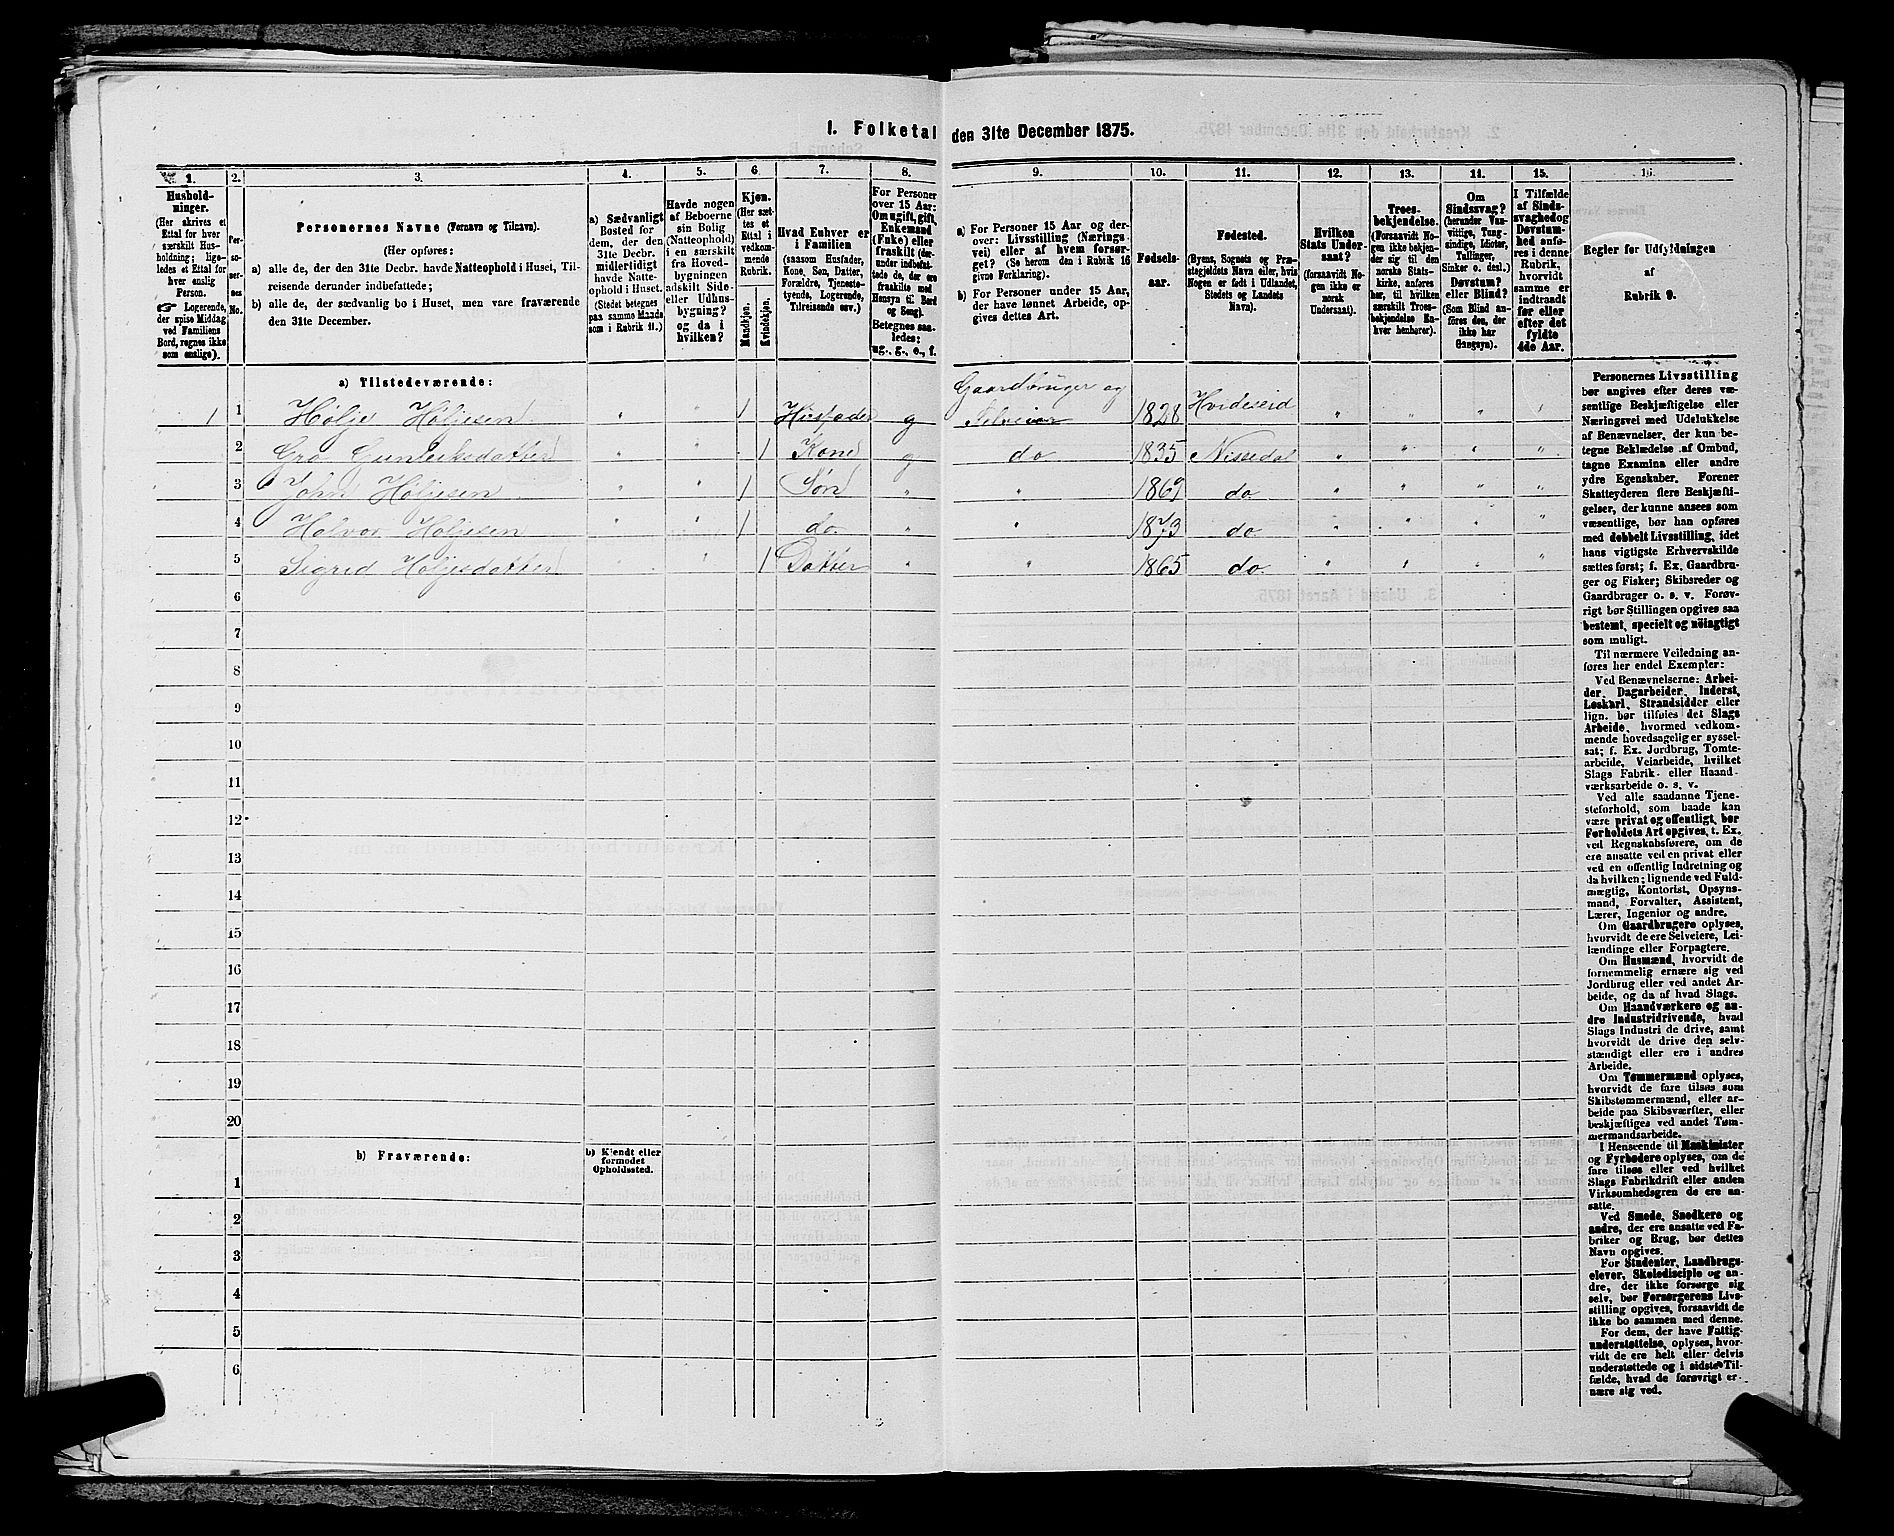 I. Folketal den 31te December 1875.
1.
Hushold-
ninger.
(Her skrives et
Ettal for hver
særskilt Hus-
holdning; lige-
ledes et Ettal for
hver enslig
Person.
☞ Logerende,
der spise Middag
ved Familiens
Bord, regnes ikke
som enslige).
2.
Per-
so-
ner-
nes
No.
3.
Personernes Navne (Fornavn og Tilnavn).
(Her opføres:
a) alle de, der den 31te Decbr. havde Natteophold i Huset, Til-
reisende derunder indbefattede;
b) alle de, der sædvanlig bo i Huset, men vare fraværende
den 31te December.
4.
a) Sædvanligt
Bosted for
dem, der den
31te Decbr.
midlertidigt
havde Natte-
ophold i Huset.
(Stedet betegnes
paa samme Maade
som i Rubrik 11.)
5.
Havde nogen
af Beboerne
sin Bolig
(Natteophold)
i en særskilt
fra Hoved-
bygningen
adskilt Side-
eller Udhus-
bygning?
og da i
hvilken?
6.
Kjøn.
(Her sæt-
tes et
Ettal i
vedkom-
mende
Rubrik.
Mandkjøn.
Kvindekjøn.
7.
Hvad Enhver er
i Familien
(saasom Husfader,
Kone, Søn, Datter,
Forældre, Tjeneste-
tyende, Logerende,
Tilreisende osv.)
8.
For Personer
over 15 Aar:
Om ugift, gift,
Enkemand
(Enke) eller
fraskilt (der-
under indbefat-
tede de, der ere
fraskilte med
Hensyn til Bord
og Seng).
Betegnes saa-
ledes:
ug., g., e., f.
9.
a) For Personer 15 Aar og der-
over: Livsstilling (Nærings-
vei) eller af hvem forsør-
get? (Se herom den i Rubrik 16
givne Forklaring).
b) For Personer under 15 Aar,
der have lønnet Arbeide, op-
gives dettes Art.
10.
Fødsels-
aar.
11.
Fødested.
(Byens, Sognets og Præ-
stegjeldets Navn eller, hvis
Nogen er født i Udlandet,
Stedets og Landets
Navn).
12.
Hvilken
Stats Under-
saat?
(forsaavidt No-
gen ikke er
norsk
Undersaat).
13.
Troes-
bekjendelse.
(Forsaavidt No-
gen ikke bekjen-
der sig til den
norske Stats-
kirke, anføres
her, til hvilken
særskilt Troes-
bekjendelse En-
hver henhører).
14.
Om
Sindssvag?
(herunder Van-
vittige, Tung-
sindige, Idioter,
Tullinger,
Sinker o. desl.)
Døvstum?
eller Blind?
(Som Blind an-
føres den, der
ikke har
Gangsyn).
15.
I Tilfælde
af Sinds-
svaghed og
Døvstum-
hed anfø-
res i denne
Rubrik,
hvorvidt
samme er
indtraadt
før eller
efter det
fyldte
4de Aar.
16.
Regler for Udfyldningen
af
Rubrik 9.
a) Tilstedeværende:
1 1 Hølje Høljesen " " 1 Husfader g Gaardbruger og Selveier 1828 Hvideseid " " " "
2 Gro Gunleiksdatter " " 1 Kone g do 1835 Nissedal " " " "
3 John Høljesen " " 1 Søn " " 1869 do " " " "
4 Halvor Høljesen " " 1 do " " 1873 do " " " "
5 Sigrid Høljesdatter " " 1 Datter " " 1865 do " " " "
6
7
8
9
10
11
12
13
14
15
16
17
18
19
20
b) Fraværende:
b) Kjendt eller
formodet
Opholdssted.
1
2
3
4
5
6
Personernes Livsstilling
bør angives efter deres væ-
sentlige Beskjæftigelse eller
Næringsvei med Udelukkelse
af Benævnelser, der kun be-
tegne Beklædelse af Ombud,
tagne Examina eller andre
ydre Egenskaber. Forener
Skatteyderen flere Beskjæfti-
gelser, der kunne ansees som
væsentlige, bør han opføres
med dobbelt Livsstilling, idet
hans vigtigste Erhvervskilde
sættes først; f. Ex. Gaardbru-
ger og Fisker; Skibsreder og
Gaardbruger o. s. v. Forøv-
rigt bør Stillingen opgives saa
bestemt, specielt og nöiagtigt
som muligt.
Til nærmere Veiledning an-
føres her endel Exempler:
Ved Benævnelserne: Arbei-
der, Dagarbeider, Inderst,
Løskarl, Strandsidder eller
lign. bør tilføies det Slags
Arbeide, hvormed vedkom-
mende hovedsagelig er syssel-
sat; f. Ex. Jordbrug, Tomte-
arbeide, Veiarbeide, hvilket
Slags Fabrik- eller Haand-
værksarbeide o. s. v.
Ved alle saadanne Tjene-
steforhold, som baade kan
være privat og offentligt, bør
Forholdets Art opgives, t. Ex.
ved Regnskabsførere, om de
ere ansatte ved en privat eller
ved en offentlig Indretning og
da hvilken; lignende ved Fuld-
mægtig, Kontorist, Opsyns-
mand, Forvalter, Assistent,
Lærer, Ingeniør og andre.
Om Gaardbrugere oplyses,
hvorvidt de ere Selveiere, Lei-
lændinge eller Forpagtere.
Om Husmænd, hvorvidt de
fornemmelig ernære sig ved
Jordbrug eller ved andet Ar-
beide, og da af hvad Slags.
Om Haandværkere og an-
dre Industridrivende, hvad
Slags Industri de drive, samt
hvorvidt de drive den selv-
stændigt eller ere i andres
Arbeide.
Om Tømmermænd oplyses,
hvorvidt de fare tilsøs som
Skibstømmermænd, eller ar-
beide paa Skibsværfter, eller
beskjæftiges ved andet Tøm-
mermandsarbeide.
I Henseende til Maskinister
og Fyrbødere oplyses, om de
fare tilsøs eller ved hvilket
Slags Fabrikdrift eller anden
Virksomhedsgren de ere an-
satte.
Ved Smede, Snedkere og
andre, der ere ansatte ved Fa-
briker og Brug, bør dettes
Navn opgives.
For Studenter, Landbrugs-
elever, Skoledisciple og an-
dre, der ikke forsørge sig
selv, bør Forsørgerens Livs-
stilling opgives, forsaavidt de
ikke bo sammen med denne.
For dem, der have Fattig-
understøttelse, oplyses, hvor-
vidt de ere helt eller delvis
understøttede og i sidste Til-
fælde, hvad de forøvrigt er-
nære sig ved.